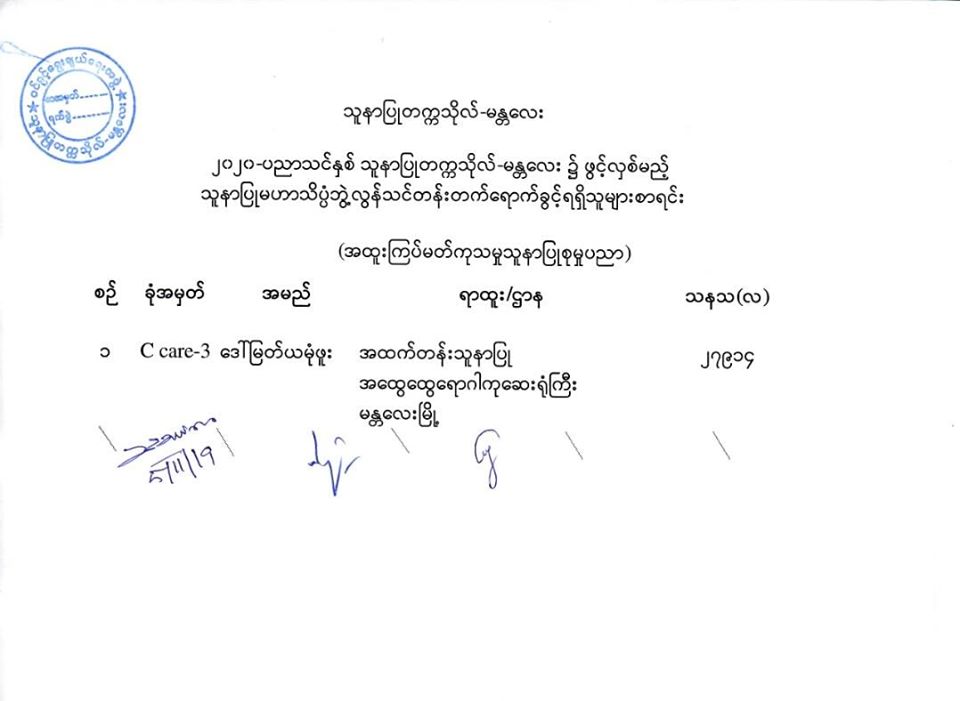 ဝင်ခွင့်ရွေးချယ်ရေးအဖွဲ့
စာအမှတ်
ရက်စွဲ
သူနာပြုတက္ကသိုလ်-မန္တလေး
သူနာပြုတက္ကသိုလ်-မန္တလေး
၂၀၂၀-ပညာသင်နှစ် သူနာပြုတက္ကသိုလ်-မန္တလေး ၌ ဖွင့်လှစ်မည့်
သူနာပြုမဟာသိပ္ပံဘွဲ့လွန်သင်တန်းတက်ရောက်ခွင့်ရရှိသူများစာရင်း
(အထူးကြပ်မတ်ကုသမှုသူနာပြုစုမှုပညာ)
စဉ် ခုံအမှတ် အမည် ရာထူး/ဌာန သနသ(လ)
၁ C care-3 ဒေါ်မြတ်ယမုံဖူး အထက်တန်းသူနာပြု ၂၇၉၁၄
အထွေထွေရောဂါကုဆေးရုံကြီး
မန္တလေးမြို့